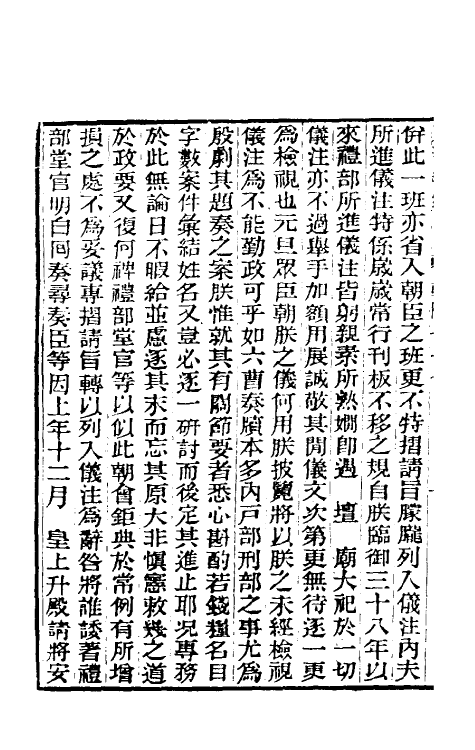 佾此一班亦省入朝臣之班更不特摺請旨朦朧列入儀注内夫
所進儀注特係歲歲常行刊板不移之規自朕臨御三十八年以
來禮部所進儀注皆躬親素所熟嫺卽遇　壇　廟大祀於一切
儀注亦不過舉手加額用展誠敬其閒儀文次第更無待逐一更
爲檢視也元旦眾臣朝朕之儀何用朕披覽將以朕之未經檢視
儀注爲不能勤政可乎如六曹奏牘本多内戸部刑部之事尤爲
殷劇其題奏之案朕惟就其有關節要者悉心斟酌若錢糧名目
字數案件彙結姓名又豈必逐一硏討而後定其進止耶况專務
於此無論日不暇給並慮逐其末而忘其原大非愼憲敕幾之道
於政要又復何裨禮部堂官等以似此朝會鉅典於常例有所增
損之處不爲妥議專摺請旨轉以列入儀注爲辭咎將誰諉著禮
部堂官明白囘奏尋奏臣等因上年十二月　皇上升殿請將安